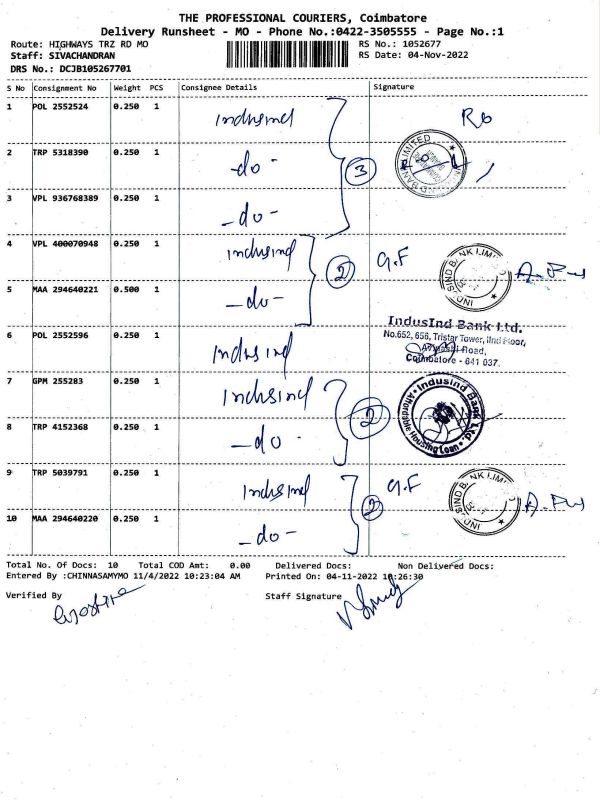 THE PROFESSIONAL COURIERS, Coimbatore
Delivery Runsheet - MO - Phone No.:0422-3505555 - Page No.:1
Route: HIGHWAYS TRZ RD MO RS No.: 1052677
Staff: SIVACHANDRAN RS Date: 04-Nov-2022
DRS No.: DCJB105267701
S No Consignment No Weight PCS Consignee Details Signature
1 POL 2552524 0.250 1 indusind
2 TRP 5318390 0.250 1 -do-
3 VPL 936768389 0.250 1 -do-
3
4 VPL 400070948 0.250 1 indusind G.F
5 MAA 294640221 0.500 1 -do-
2
IndusInd Bank Ltd.
No.652, 656, Tristar Tower, IInd Floor,
Avinashi Road,
Coimbatore - 641 037.
6 POL 2552596 0.250 1 indusind
7 GPM 255283 0.250 1 indusind
8 TRP 4152368 0.250 1 -do-
2
IndusInd Bank Ltd.
Affordable Housing Loan
9 TRP 5039791 0.250 1 indusind G.F
10 MAA 294640220 0.250 1 -do-
2
Total No. Of Docs: 10 Total COD Amt: 0.00 Delivered Docs: Non Delivered Docs:
Entered By :CHINNASAMYMO 11/4/2022 10:23:04 AM Printed On: 04-11-2022 10:26:30
Verified By Staff Signature